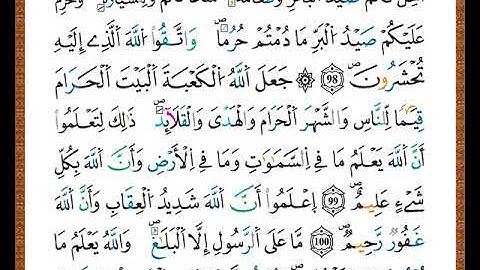 أُحِلَّ لَكُمْ صَيْدُ اُلْبَحْرِ وَطَعَامُهُۥ مَتَٰعاً لَّكُمْ وَلِلسَّيَّارَةِۖ وَحُرِّمَ
عَلَيْكُمْ صَيْدُ اُلْبَرِّ مَا دُمْتُمْ حُرُماًۖ وَاتَّقُواْ اُللَّهَ اَلَّذِےٓ إِلَيْهِ
تُحْشَرُونَۖ 98 ۞ جَعَلَ اَللَّهُ اُلْكَعْبَةَ اَلْبَيْتَ اَلْحَرَامَ
قِيَٰماً لِّلنَّاسِ وَالشَّهْرَ اَلْحَرَامَ وَالْهَدْيَ وَالْقَلَٰٓئِدَۖ ذَٰلِكَ لِتَعْلَمُوٓاْ
أَنَّ اَللَّهَ يَعْلَمُ مَا فِے اِلسَّمَٰوَٰتِ وَمَا فِے اِلْأَرْضِ وَأَنَّ اَللَّهَ بِكُلِّ
شَےْءٍ عَلِيمٌۖ 99 اِعْلَمُوٓاْ أَنَّ اَللَّهَ شَدِيدُ اُلْعِقَابِ وَأَنَّ اَللَّهَ
غَفُورٌ رَّحِيمٌۖ 100 مَّا عَلَى اَلرَّسُولِ إِلَّا اَلْبَلَٰغُۖ وَاللَّهُ يَعْلَمُ مَا